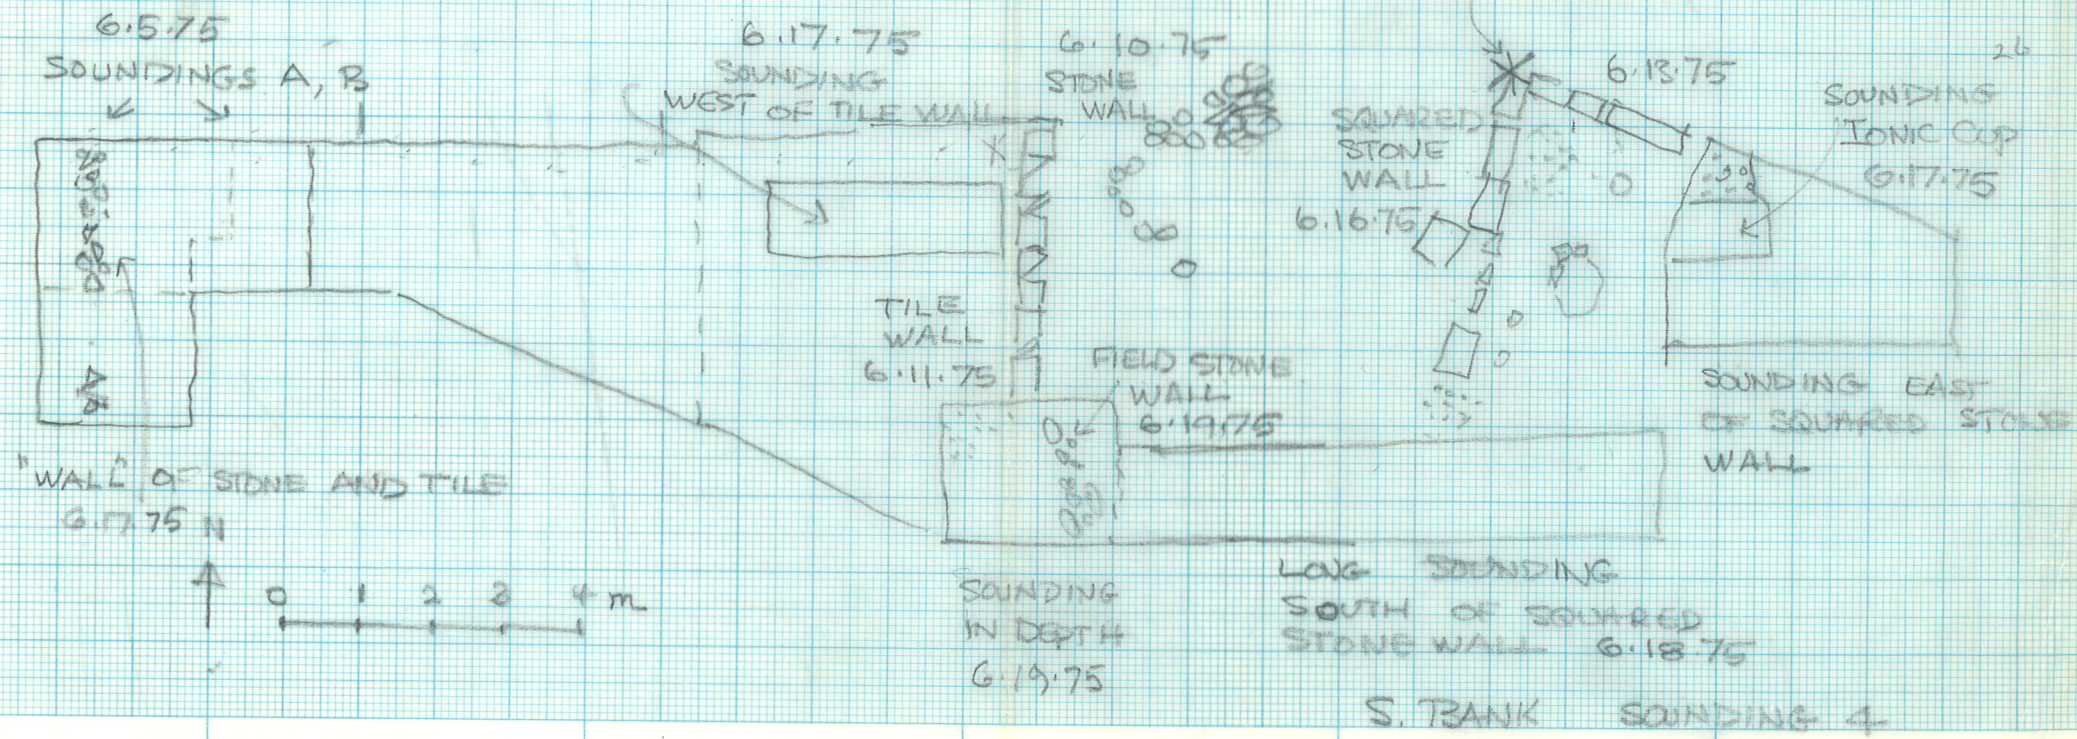 6.5.75
SOUNDINGS A, B
6.17.75
SOUNDING
WEST OF TILE WALL
6.10.75
STONE
WALL
6.13.75
26
SOUNDING
IONIC CUP
6.17.75
SQUARED
STONE
WALL
6.16.75
TILE
WALL
6.11.75
FIELD STONE
WALL
6.19.75
SOUNDING EAST
OF SQUARED STONE
WALL
"WALL" OF STONE AND TILE
6.17.75
N
0 1 2 3 4 m
SOUNDING
IN DEPTH
6.19.75
LONG SOUNDING
SOUTH OF SQUARED
STONE WALL 6.18.75
S. BANK SOUNDING 4